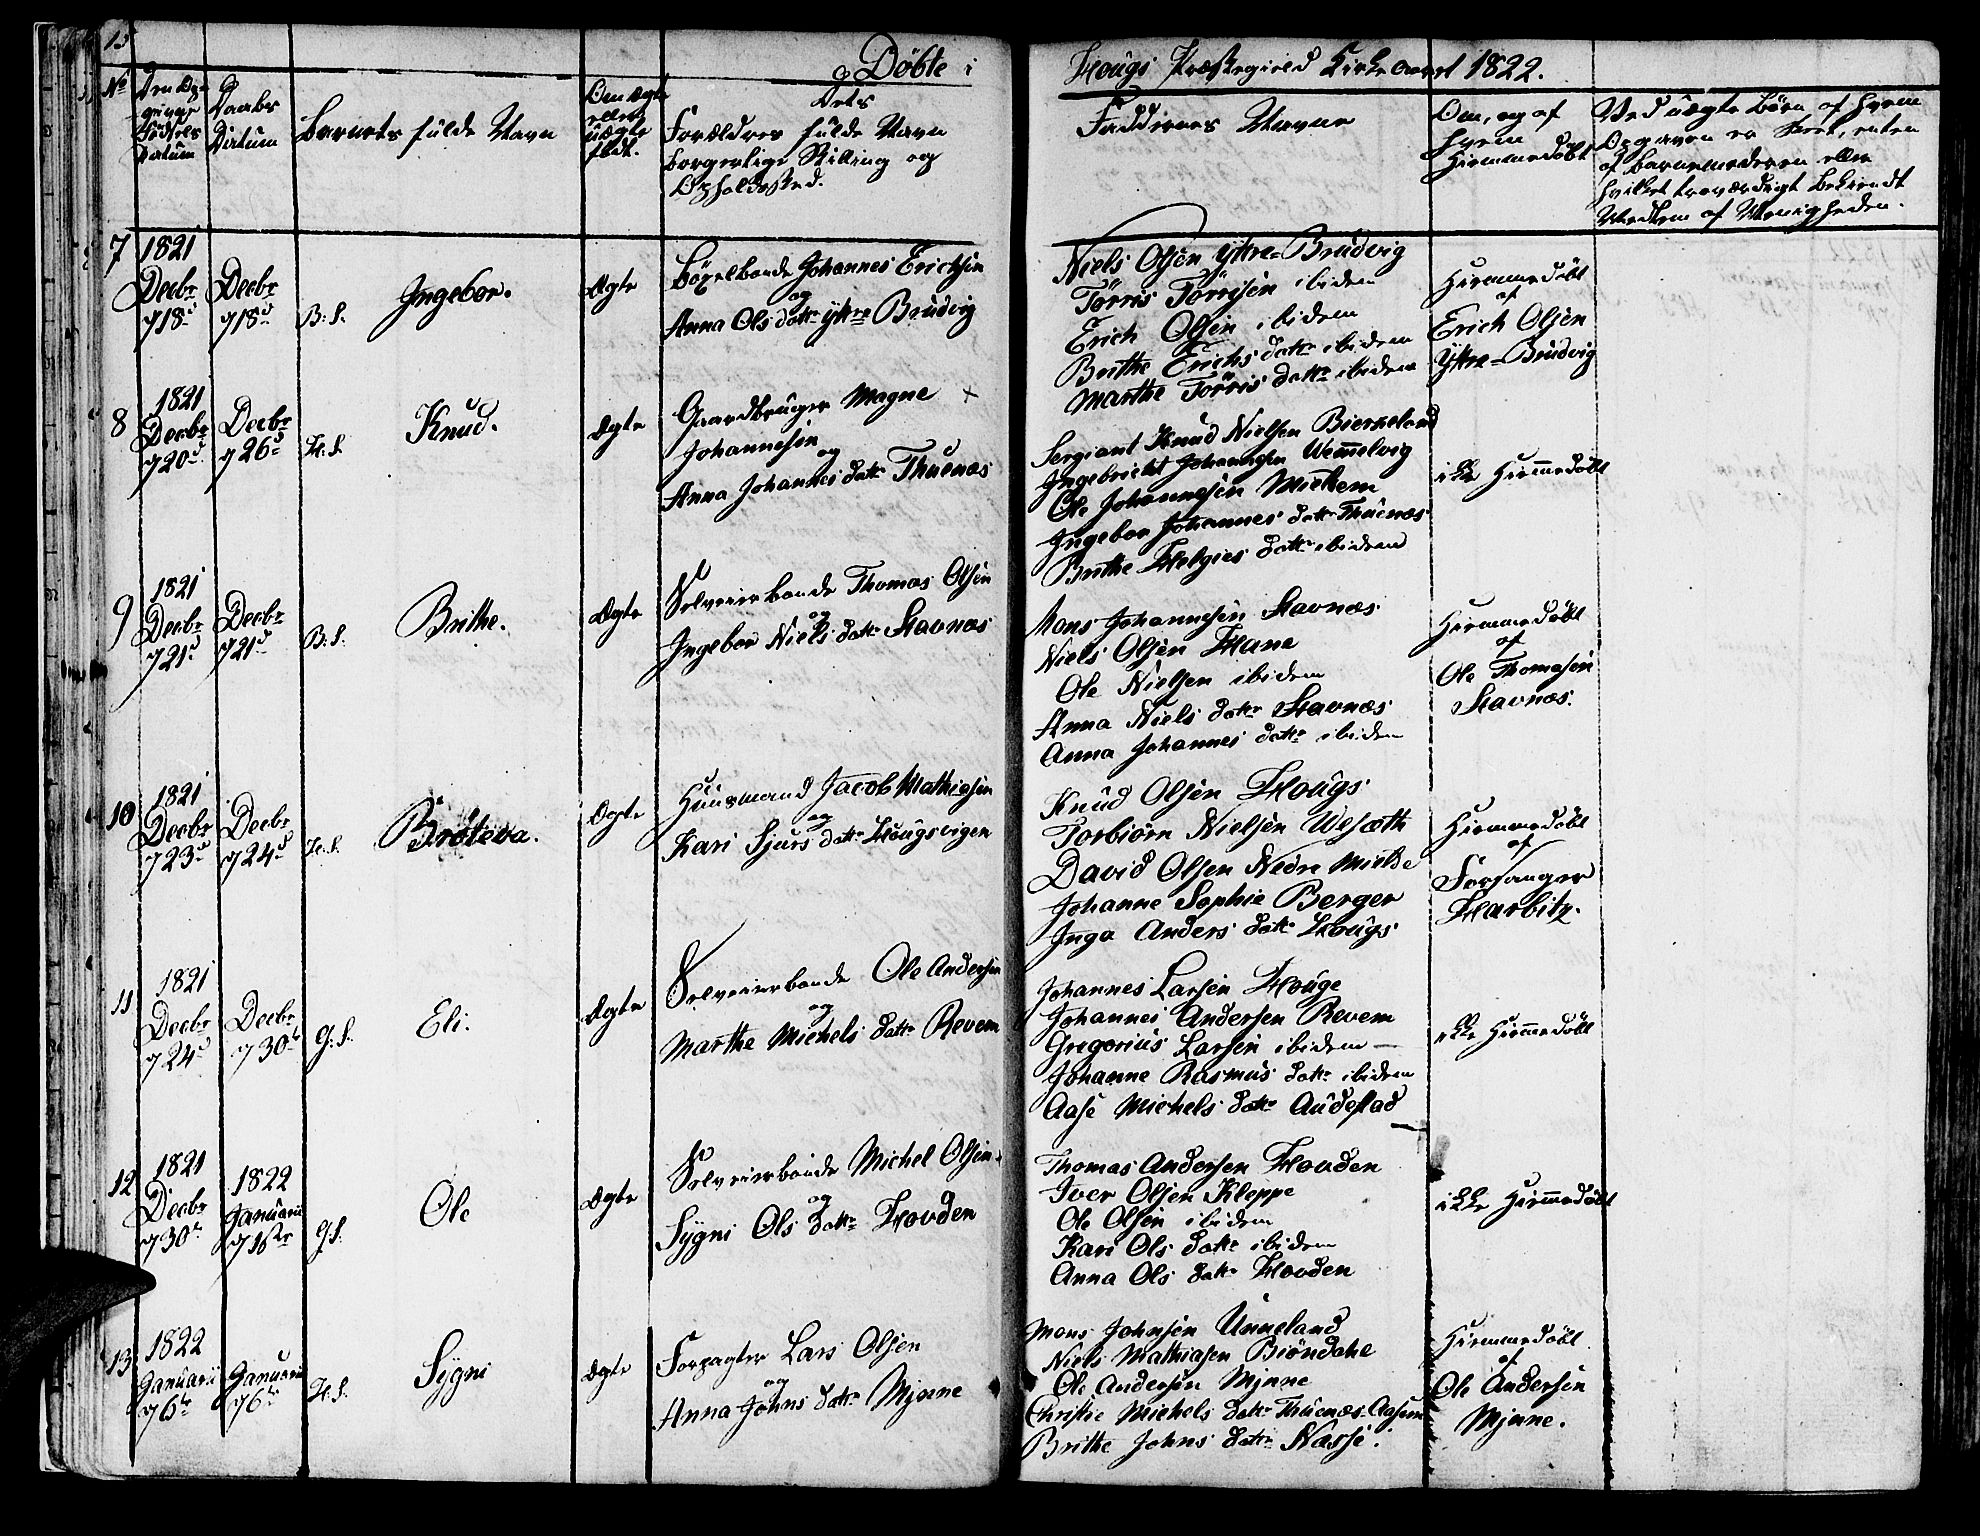 15
Døbte i Hougs Præstegield Kirke aaret 1822.
No
Den Op-
givne
Fødsels
Datum
Daabs
Datum
Barnets fulde Navn
Om ægte
eller
uægte
født.
Dets
Forældres fulde Navn
borgerlige Stilling og
Opholdssted.
Faddernes Navne
Om, og af
hvem
Hiemmedøbt
Ved uægte Børn af hvem
Opgaven er skeet, enten
af Barnemoderen eller
hvilket troværdigt bekiendt
Medlem af Menigheden.
7
1821
Decbr
18d
Decbr
18d
B: S.
Ingebor.
Ægte
Bøxelbonde Johannes Erichsen
og
Anna Ols datr Ytre Brudvig
Niels Olsen Ytre=Brudvig
Tørris Torrisen ibidem
Erich Olsen ibidem
Brithe Erichs datr ibidem
Marthe Tørris datr ibidem
Hiemmedøbt
af
Erich Olsen
Ytre=Brudvig
8
1821
Decbr
20d
Decbr
26d
H. S.
Knud.
Ægte
Gaardbruger Magne +
Johannesen
og
Anna Johannes datr Thuenæs
Sergiant Knud Nielsen Bierkeland
Ingebricht Johannesen Wemmelvig
Ole Johannesen Mieltem
Ingebor Johannes datr Thuenæs
Brithe Helgies datr ibidem
ikke Hiemmedøbt
9
1821
Decbr
21d
Decbr
21d
B: S.
Brithe.
Ægte
Selveierbonde Thomas Olsen
og
Ingebor Niels datr Stavnæs
Mons Johannesen Stavnæs
Niels Olsen Hane
Ole Nielsen ibidem
Anna Niels datr Stavnæs
Anna Johannes datr ibidem
Hiemmedøbt
af
Ole Thomasen
Stavnæs.
10
1821
Decbr
23d
Decbr
24d
H. S.
Brøteva.
Ægte
Huusmand Jacob Mathiasen
og
Kari Sjurs datr Hougsvigen
Knud Olsen Hougs
Torbiørn Nielsen Wesæth
David Olsen Nedre Mielde
Johanne Sophie Berger
Inga Anders datr Hougs
Hiemmedøbt
af
Forsanger
Harbitz.
11
1821
Decbr
24d
Decbr
30te
G: S.
Eli.
Ægte
Selveierbonde Ole Andersen
og
Marthe Michels datr Revem
Johannes Larsen Houge
Johannes Andersen Revem
Gregorius Larsen ibidem
Johanne Rasmus datr ibidem
Aase Michels datr Audestad
ikke Hiemmedøbt
12
1821
Decbr
30te
1822
Januarii
1ste
G S.
Ole
Ægte
Selveierbonde Michel Olsen
og
Sygni Ols datr Hovden
Thomas Andersen Hovden
Iver Olsen Kleppe
Ole Olsen ibidem
Kari Ols datr ibidem
Anna Ols datr Hovden
ikke Hiemmedøbt
13
1822
Januarii
6te
Januarii
6te
H. S.
Sygni
Ægte
Forpagter Lars Olsen
og
Anna Johns datr Mjnne
Mons Johnsen Unneland
Niels Mathiasen Biøndahl
Ole Andersen Mjnne
Christie Michels datr Thuenæs Aasem
Brithe Johns datr Nasse.
Hiemmedøbt
af
Ole Andersen
Mjnne.